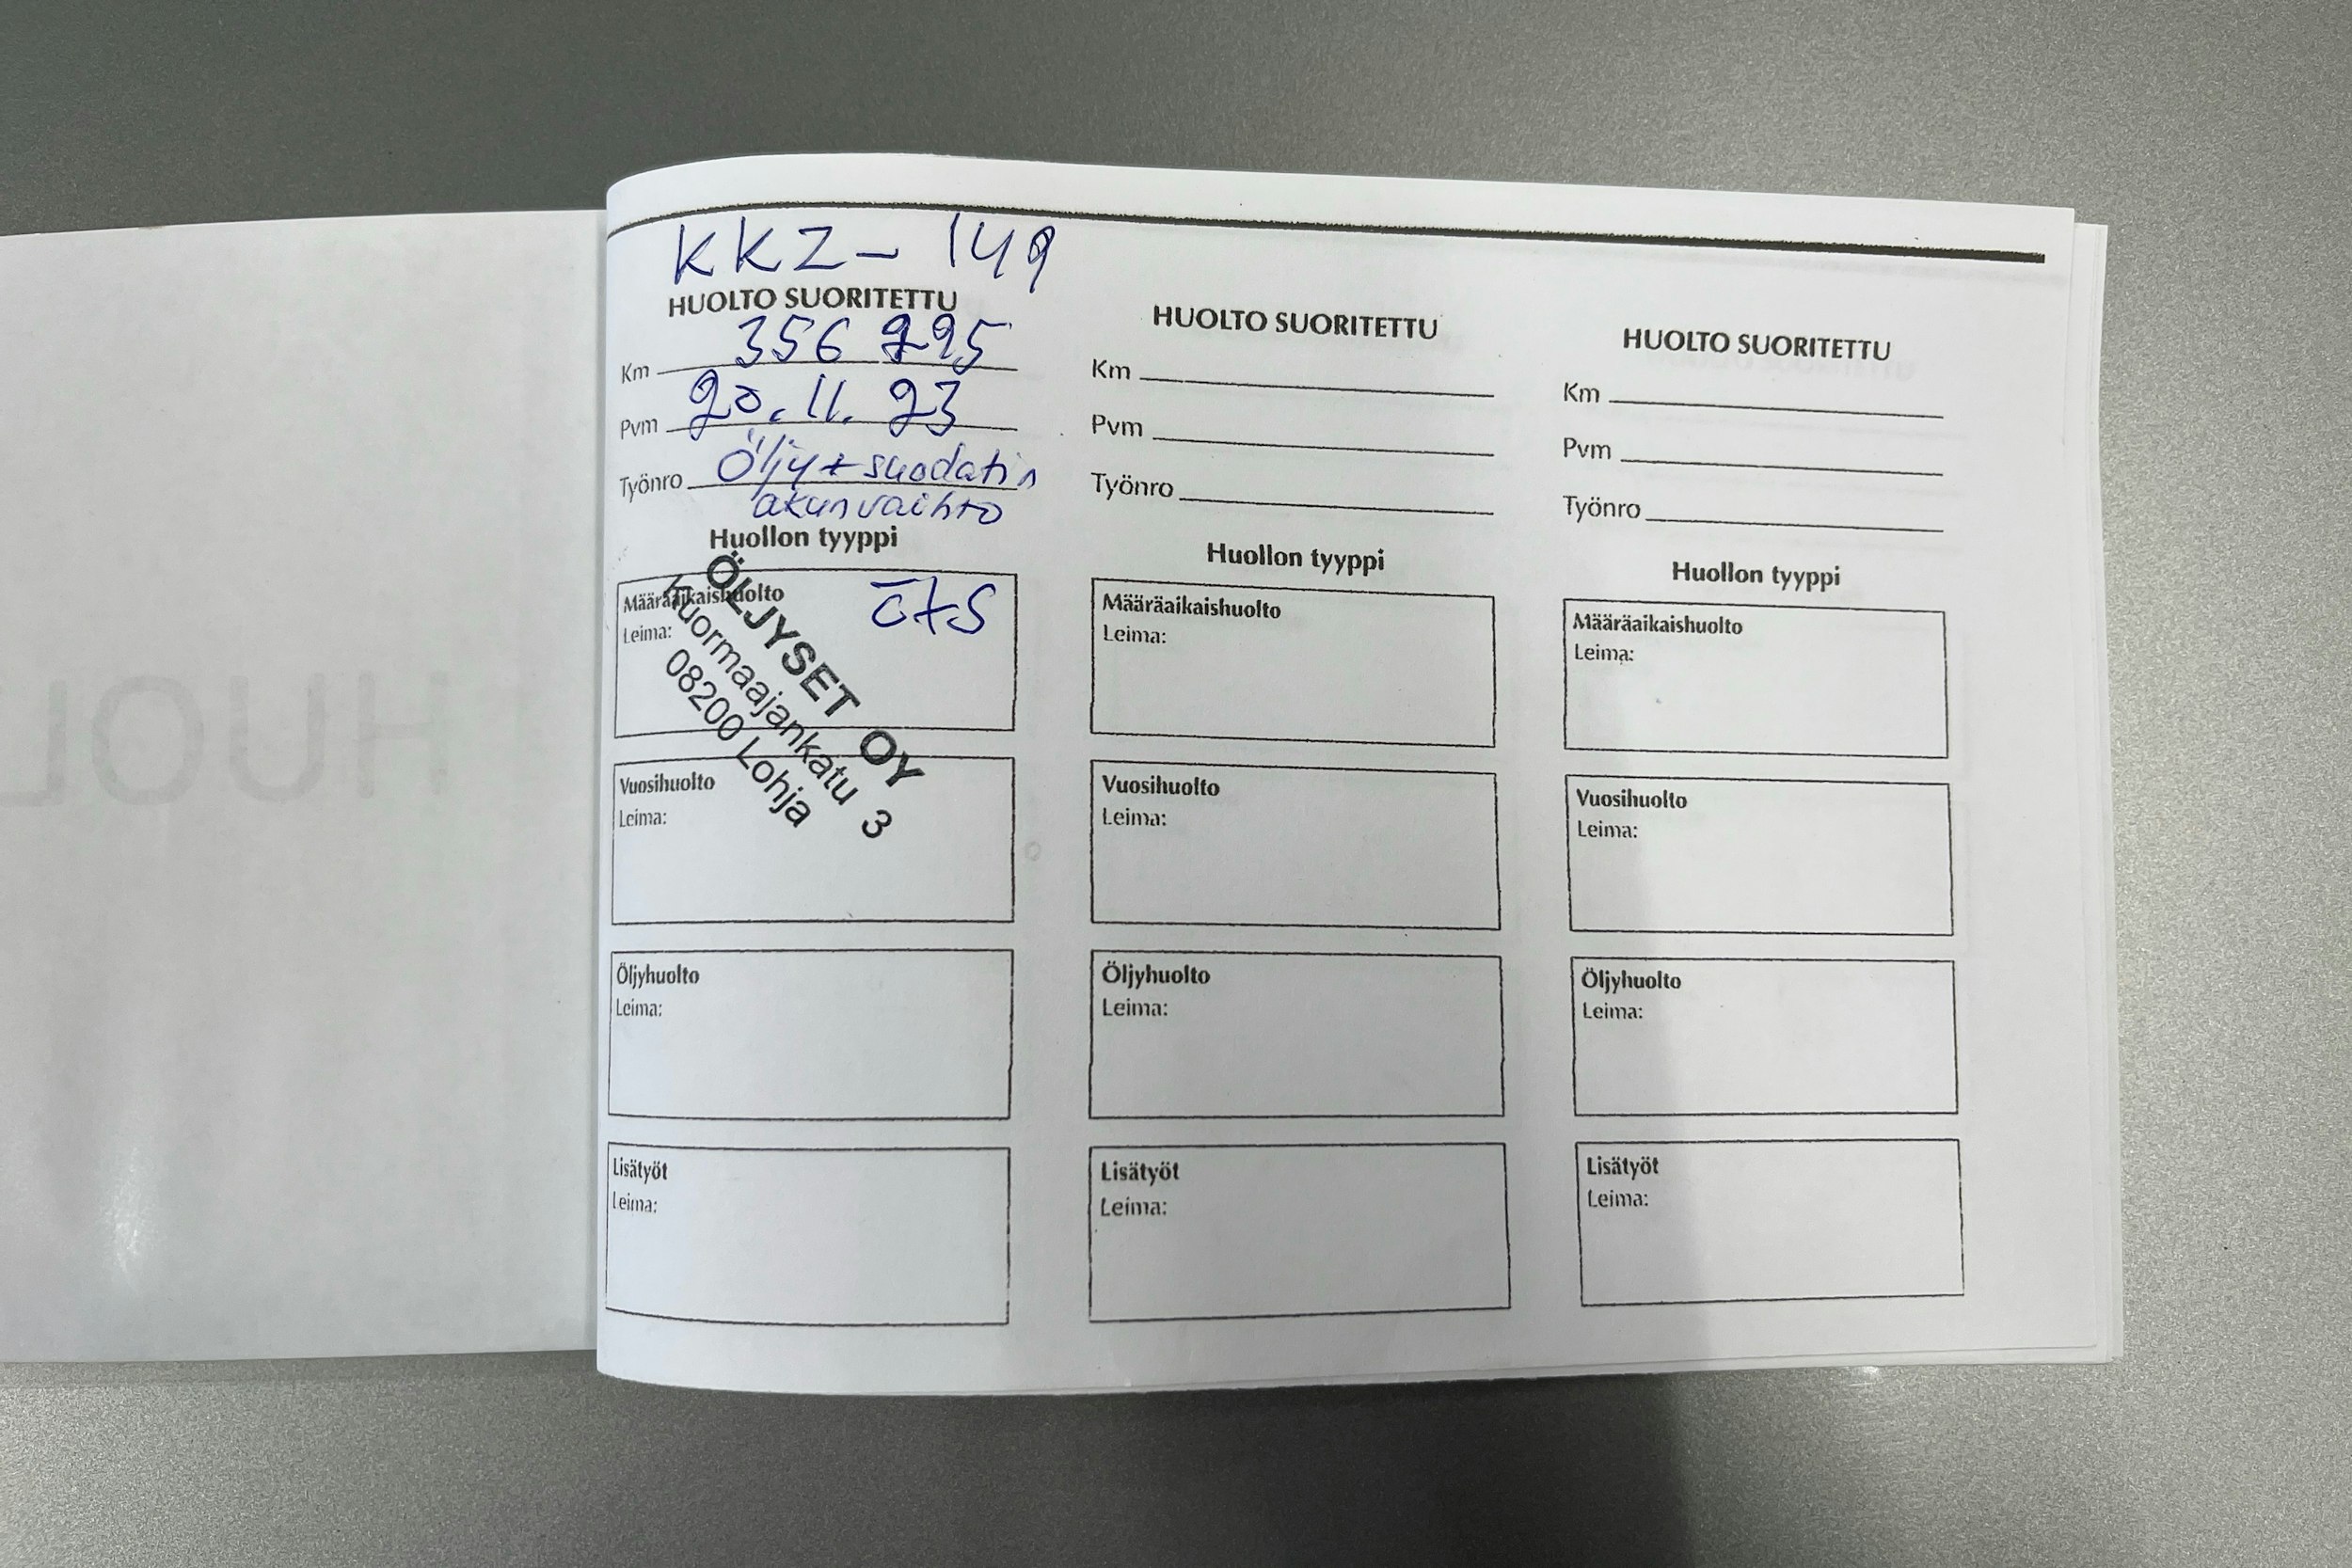 KKZ - 149
HUOLTO SUORITETTU
Km 356 795
Pvm 20.11.23
Työnro Öljy + suodatin
akun vaihto
Huollon tyyppi
Määräaikaishuolto Ö+S
Leima:
ÖLJYSET OY
Kuormaajankatu 3
08200 Lohja
Vuosihuolto
Leima:
Öljyhuolto
Leima:
Lisätyöt
Leima:
HUOLTO SUORITETTU
Km
Pvm
Työnro
Huollon tyyppi
Määräaikaishuolto
Leima:
Vuosihuolto
Leima:
Öljyhuolto
Leima:
Lisätyöt
Leima:
HUOLTO SUORITETTU
Km
Pvm
Työnro
Huollon tyyppi
Määräaikaishuolto
Leima:
Vuosihuolto
Leima:
Öljyhuolto
Leima:
Lisätyöt
Leima: